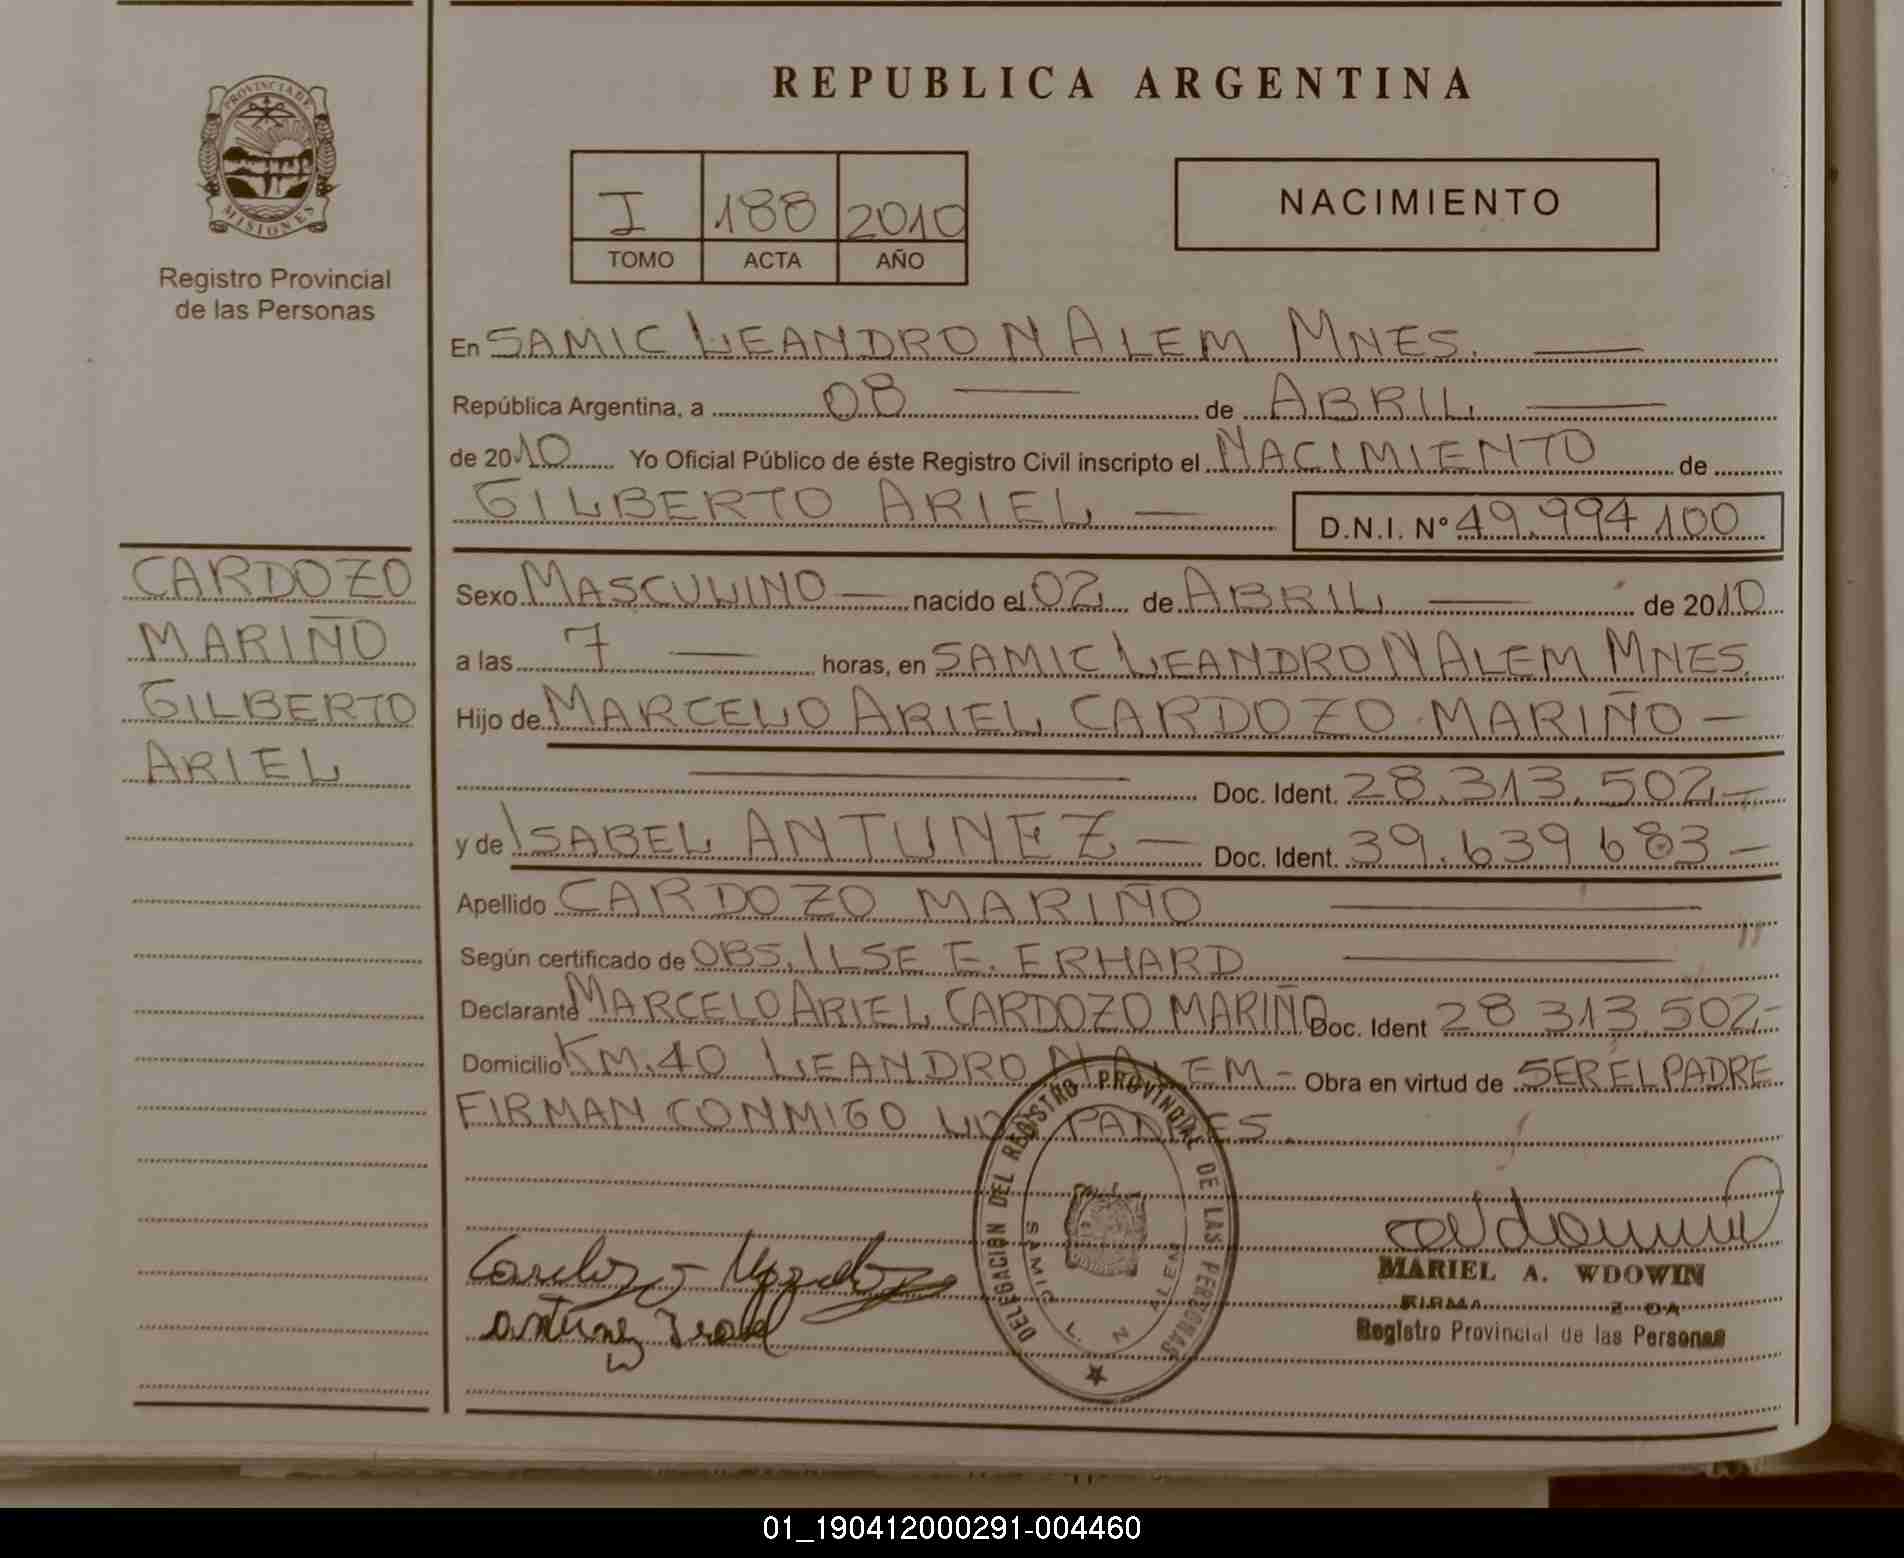 REPUBLICA ARGENTINA
PROVINCIA DE
MISIONES
Registro Provincial
de las Personas
I 188 2010
TOMO ACTA AÑO
NACIMIENTO
En SAMIC LEANDRO N ALEM MNES.
República Argentina, a 08 de ABRIL
de 2010 Yo Oficial Público de éste Registro Civil inscripto el NACIMIENTO de
GILBERTO ARIEL D.N.I. N° 49.994.100
CARDOZO
MARIÑO
GILBERTO
ARIEL
Sexo MASCULINO nacido el 02 de ABRIL de 2010
a las 7 horas, en SAMIC LEANDRO N ALEM MNES.
Hijo de MARCELO ARIEL CARDOZO MARIÑO
Doc. Ident. 28.313.502
y de ISABEL ANTUNEZ Doc. Ident. 39.639.683
Apellido CARDOZO MARIÑO
Según certificado de OBS. ILSE E. ERHARD
Declarante MARCELO ARIEL CARDOZO MARIÑO Doc. Ident 28.313.502
Domicilio KM.40 LEANDRO N ALEM Obra en virtud de SER EL PADRE
FIRMAN CONMIGO LOS PADRES.
DELEGACION DEL REGISTRO PROVINCIAL DE LAS PERSONAS
SAMIC L. N ALEM
MARIEL A. WDOWIN
Registro Provincial de las Personas
01_190412000291-004460